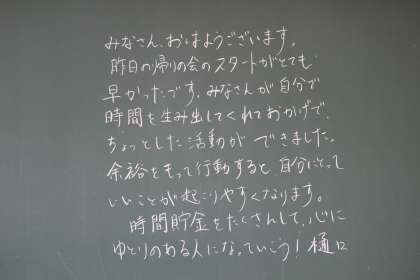 みなさん、おはようございます。
昨日の帰りの会のスタートがとても
早かったです。みなさんが自分で
時間を生み出してくれたおかげで、
ちょっとした活動ができました。
余裕をもって行動すると、自分にとって
いいことが起こりやすくなります。
時間貯金をたくさんして、心に
ゆとりのある人になっていこう！樋口